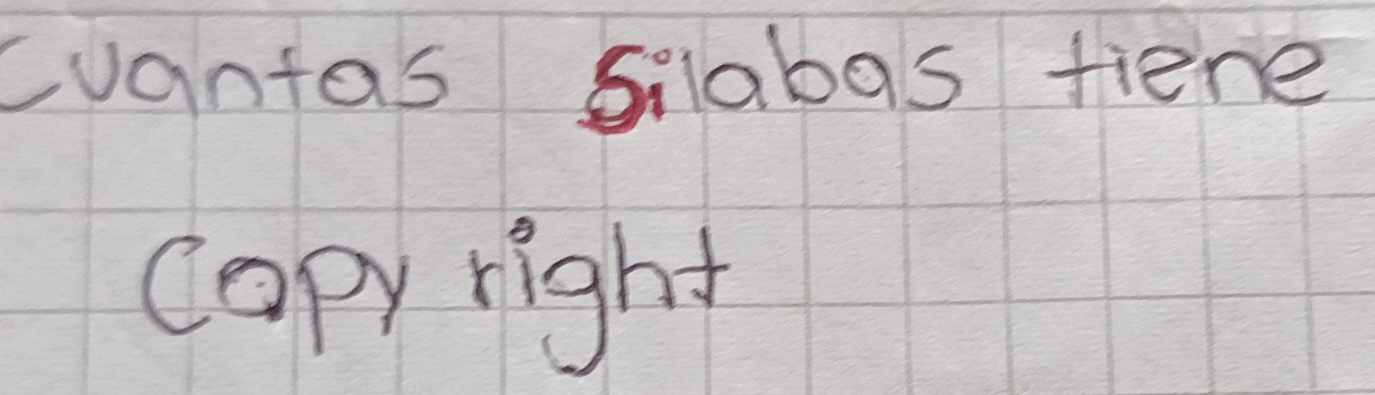 cuantas silabas tiene
Copy right